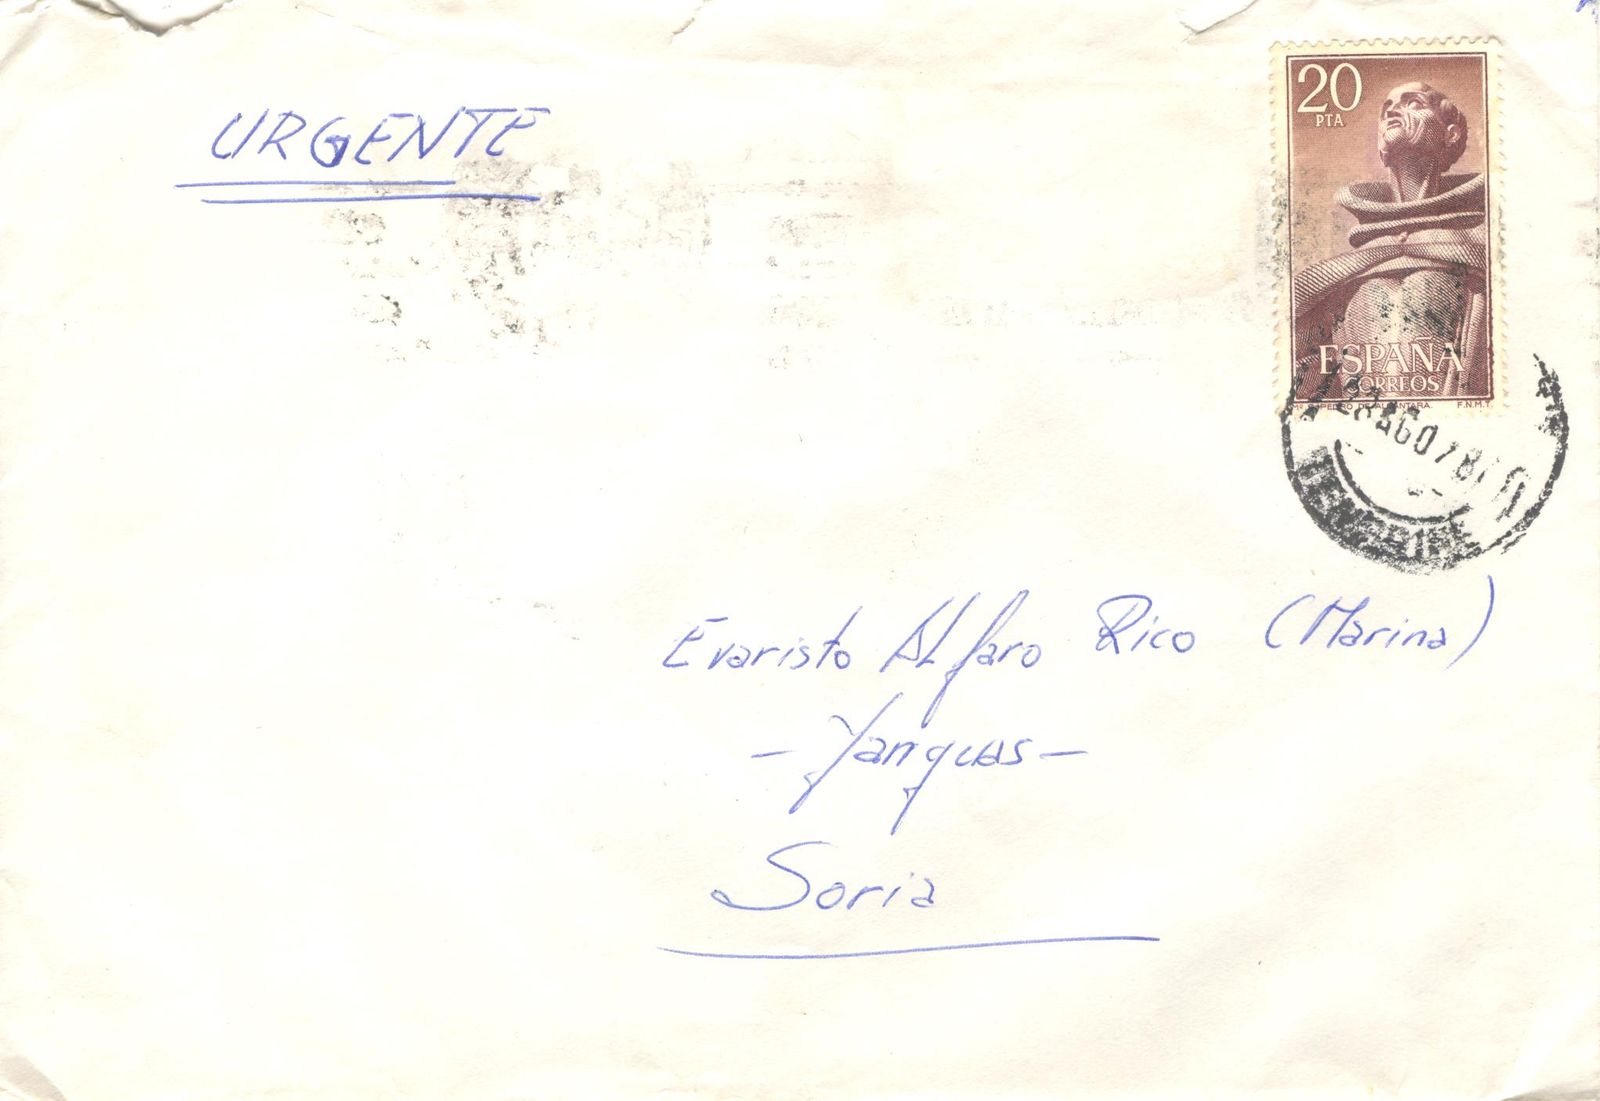 URGENTE
20
PTA
ESPAÑA
CORREOS
Mº S. PEDRO DE ALCANTARA. F.N.M.T.
AGO 78
Evaristo ALfaro Rico (Marina)
- Yanguas -
Soria